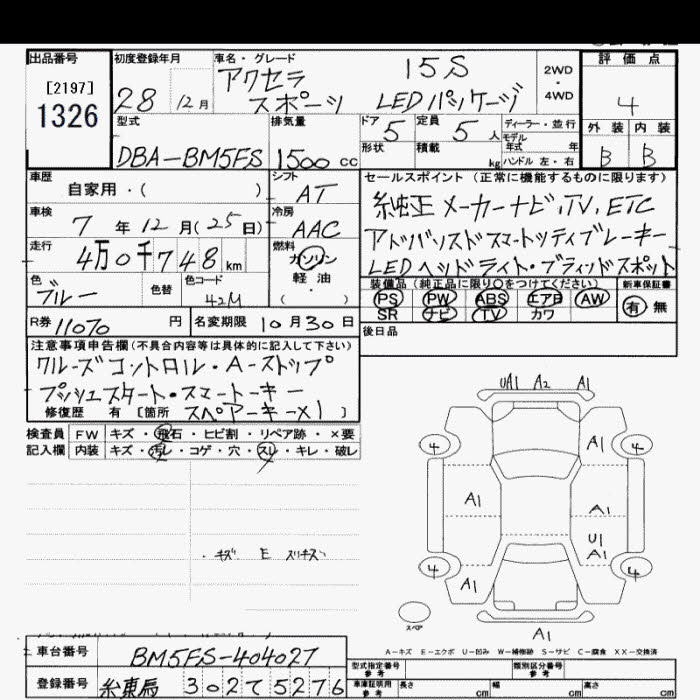 出品番号 初度登録年月 車名・グレード 評価点
[2197]
1326
28 12月
アクセラ 15S
スポーツ LEDパッケージ
2WD
4WD
4
型式 排気量 ドア 定員 ディーラー・並行 外装 内装
DBA-BM5FS 1500cc 5 5人 モデル年式 年
形状 積載 kg ハンドル 左・右 B B
車歴 シフト セールスポイント (正常に機能するものに限ります)
自家用・( ) AT
純正メーカーナビ,TV,ETC
車検 冷房
7年12月(25日) AAC
アドバンスドスマートシティブレーキ
走行 燃料
4万0千748km ガソリン
軽油
・( )
LEDヘッドライト・ブラインドスポット
色 色替 色コード
ブルー 42M
装備品(純正品に限り○をつけてください) 新車保証書
PS PW ABS エアB AW 有 無
SR ナビ TV カワ
R券 11070円 名変期限 10月30日
後日品
注意事項申告欄(不具合内容等は具体的に記入して下さい)
クルーズコントロール・A-ストップ
プッシュスタート・スマートキー
修復歴 有 [箇所 スペアーキー×1 ]
検査員 FW キズ・飛石・ヒビ割・リペア跡・×要
記入欄 内装 キズ・汚レ・コゲ・穴・スレ・キレ・破レ
・キズ E スリキズ
UA1 A2 A1
4 A1 4
A1 A1
U1
A1
4 4
A1
スペア
A1
A-キズ E-エクボ U-凹み W-補修跡 S-サビ C-腐食 XX-交換済
車台番号 BM5FS-404027
型式指定番号 参考 類別区分番号 参考
登録番号 302 5276
車庫証明用 参考 長さ cm 幅 cm 高さ cm